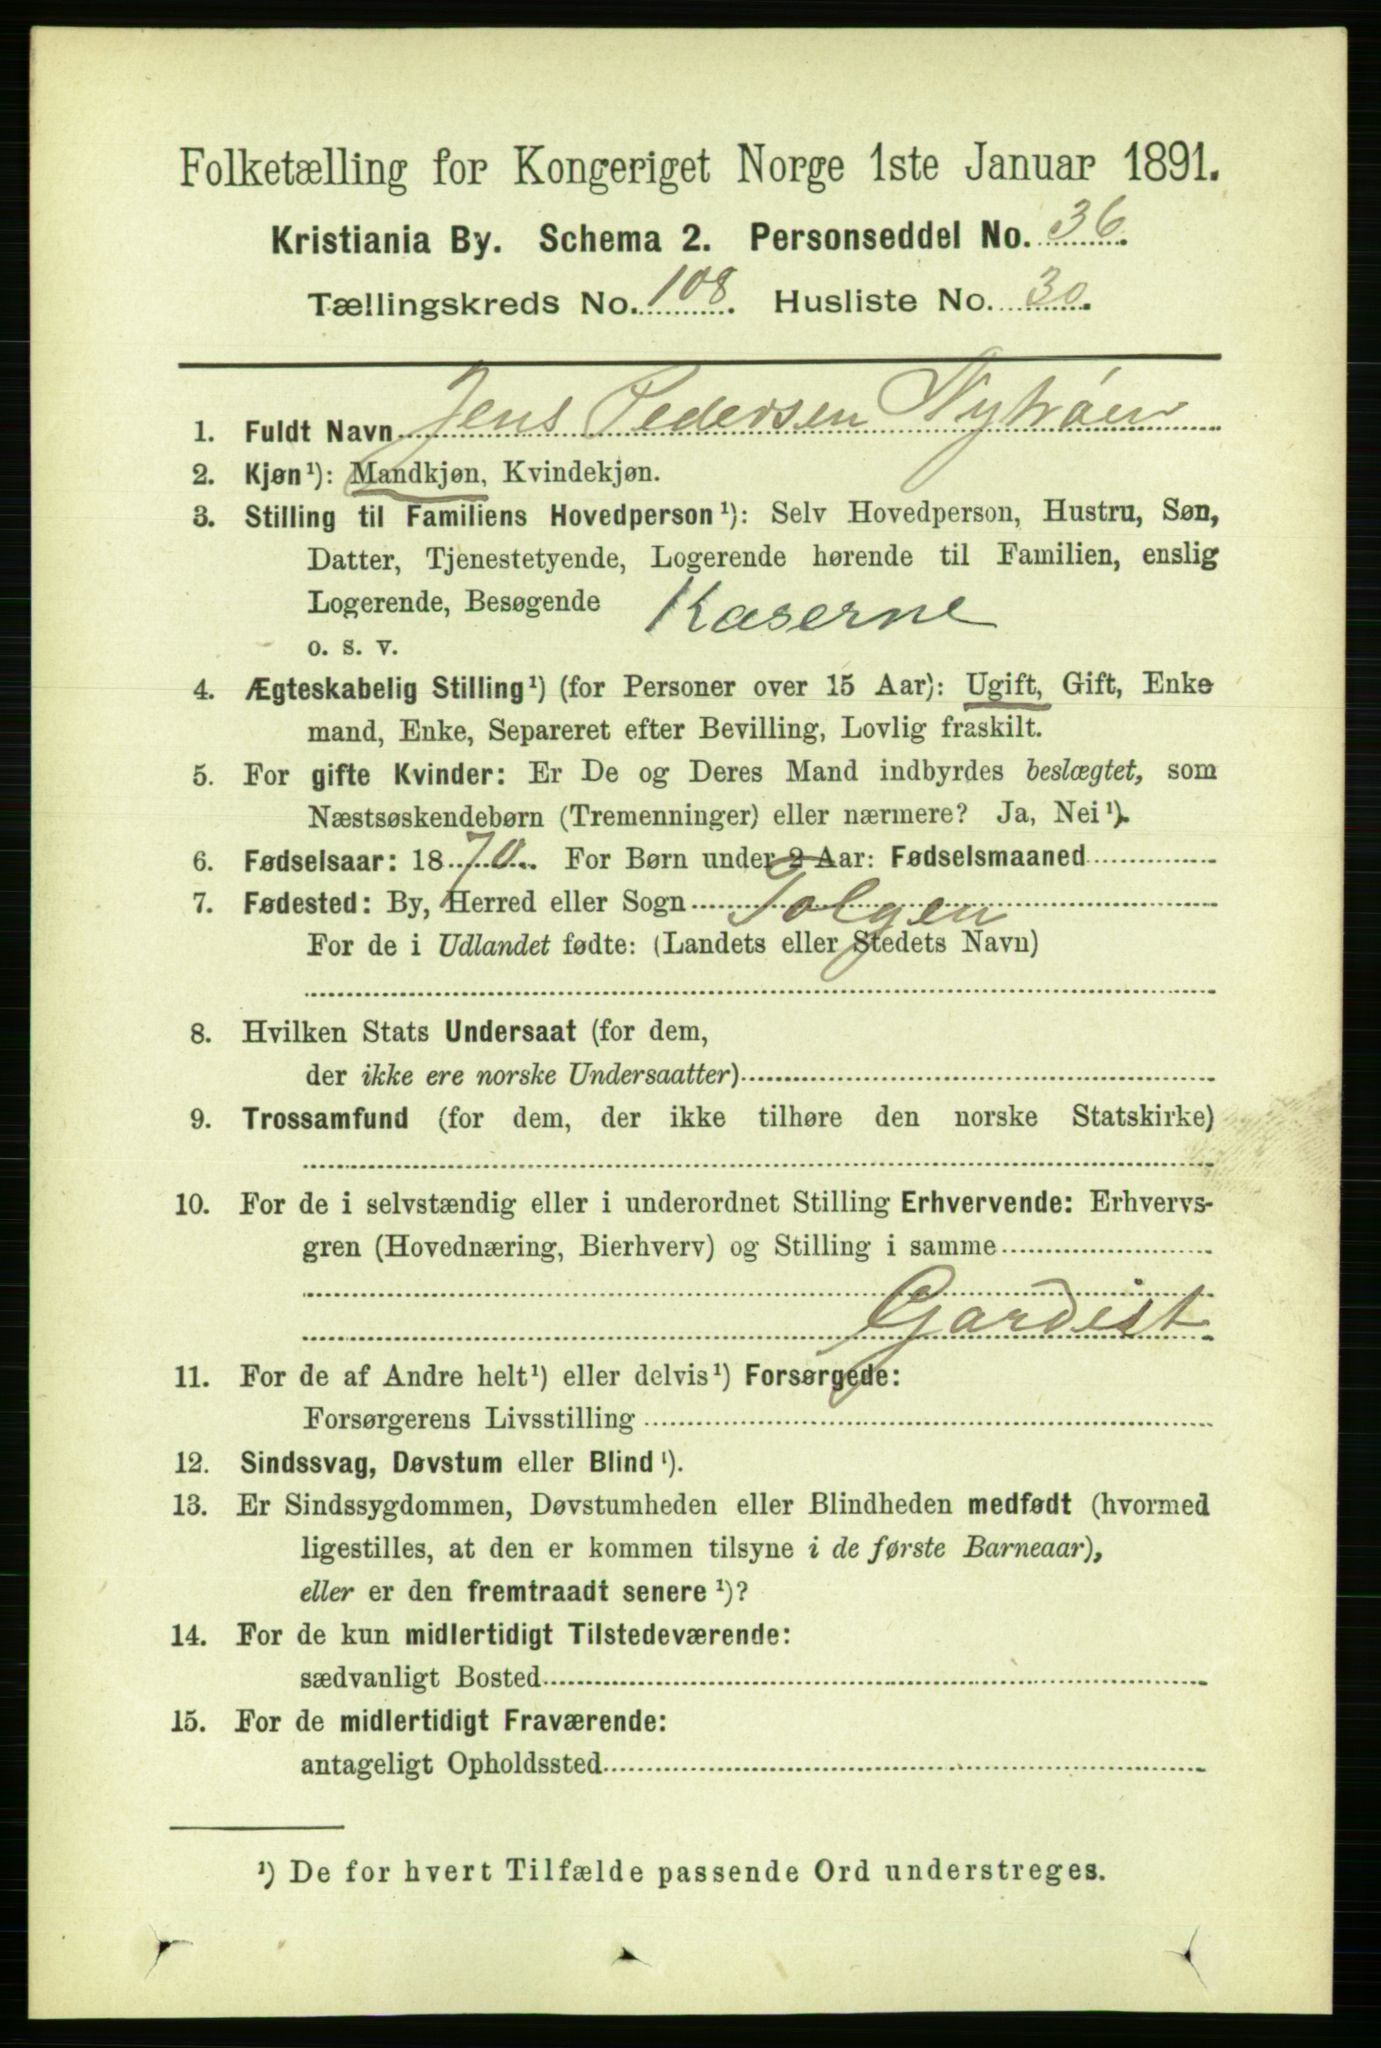 Folketælling for Kongeriget Norge 1ste Januar 1891.
Kristiania By. Schema 2. Personseddel No. 36.
Tællingskreds No. 108. Husliste No. 30.
1. Fuldt Navn Jens Pedersen Nytrøen
2. Kjøn¹): Mandkjøn, Kvindekjøn.
3. Stilling til Familiens Hovedperson¹): Selv Hovedperson, Hustru, Søn,
Datter, Tjenestetyende, Logerende hørende til Familien, enslig
Logerende, Besøgende Kaserne
o. s. v.
4. Ægteskabelig Stilling¹) (for Personer over 15 Aar): Ugift, Gift, Enke
mand, Enke, Separeret efter Bevilling, Lovlig fraskilt.
5. For gifte Kvinder: Er De og Deres Mand indbyrdes beslægtet, som
Næstsøskendebørn (Tremenninger) eller nærmere? Ja, Nei¹).
6. Fødselsaar: 1870. For Børn under 2 Aar: Fødselsmaaned
7. Fødested: By, Herred eller Sogn Tolgen
For de i Udlandet fødte: (Landets eller Stedets Navn)
8. Hvilken Stats Undersaat (for dem,
der ikke ere norske Undersaatter)
9. Trossamfund (for dem, der ikke tilhøre den norske Statskirke)
10. For de i selvstændig eller i underordnet Stilling Erhvervende: Erhvervs-
gren (Hovednæring, Bierhverv) og Stilling i samme
Gardist
11. For de af Andre helt¹) eller delvis¹) Forsørgede:
Forsørgerens Livsstilling
12. Sindssvag, Døvstum eller Blind¹).
13. Er Sindssygdommen, Døvstumheden eller Blindheden medfødt (hvormed
ligestilles, at den er kommen tilsyne i de første Barneaar),
eller er den fremtraadt senere¹)?
14. For de kun midlertidigt Tilstedeværende:
sædvanligt Bosted
15. For de midlertidigt Fraværende:
antageligt Opholdssted
¹) De for hvert Tilfælde passende Ord understreges.